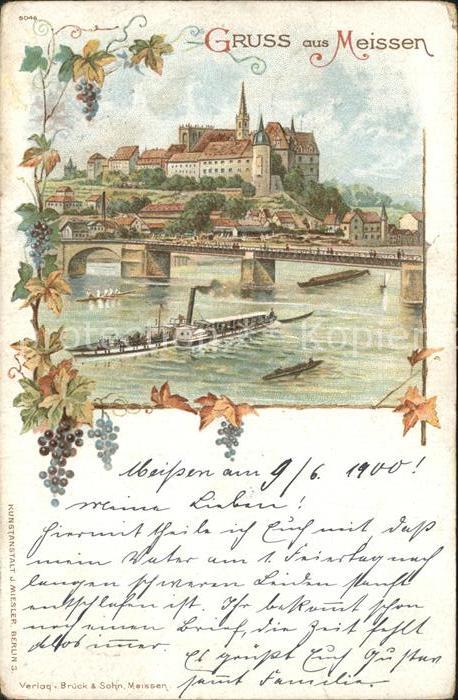 5046
Gruss aus Meissen
Meißen am 9/6. 1900!
Meine Lieben!
Hiermit theile ich Euch mit daß
mein Vater am 1. Feiertag nach
langen schweren Leiden sanft
entschlafen ist. Ihr bekommt schon
noch einen Brief, die Zeit fehlt
immer.
Es grüßt Euch Gustav
samt Familie.
KUNSTANSTALT J. MIESLER, BERLIN S.
Verlag v. Brück & Sohn, Meissen.